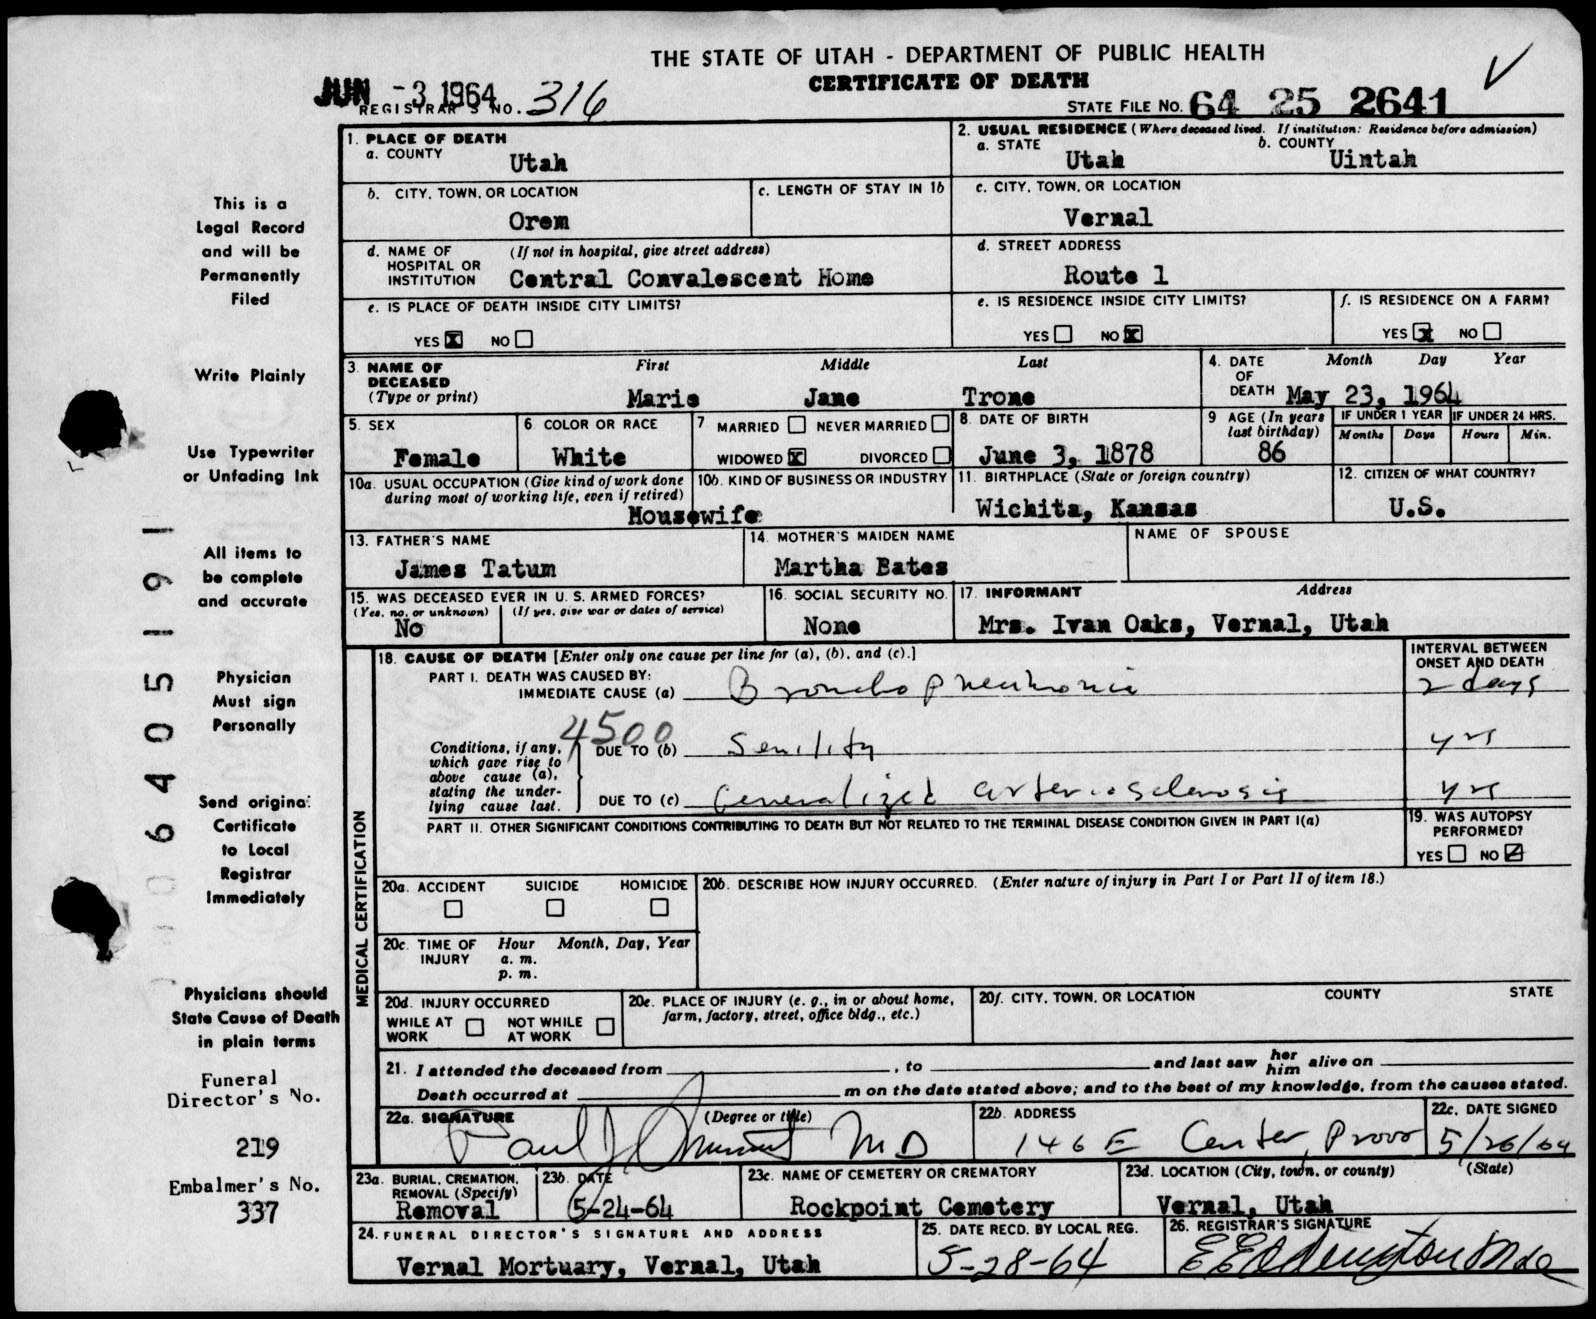 THE STATE OF UTAH - DEPARTMENT OF PUBLIC HEALTH
CERTIFICATE OF DEATH
JUN -3 1964
REGISTRAR'S NO. 316
STATE FILE NO. 64 25 2641
1. PLACE OF DEATH
a. COUNTY
Utah
2. USUAL RESIDENCE (Where deceased lived. If institution: Residence before admission)
a. STATE b. COUNTY
Utah Uintah
b. CITY, TOWN, OR LOCATION
Orem
c. LENGTH OF STAY IN 1b
c. CITY, TOWN, OR LOCATION
Vernal
d. NAME OF HOSPITAL OR INSTITUTION (If not in hospital, give street address)
Central Convalescent Home
d. STREET ADDRESS
Route 1
e. IS PLACE OF DEATH INSIDE CITY LIMITS?
YES X NO
e. IS RESIDENCE INSIDE CITY LIMITS?
YES NO X
f. IS RESIDENCE ON A FARM?
YES X NO
3. NAME OF DECEASED (Type or print)
First Middle Last
Marie Jane Trone
4. DATE OF DEATH Month Day Year
May 23, 1964
5. SEX
Female
6. COLOR OR RACE
White
7 MARRIED NEVER MARRIED
WIDOWED X DIVORCED
8. DATE OF BIRTH
June 3, 1878
9 AGE (In years last birthday)
86
IF UNDER 1 YEAR IF UNDER 24 HRS.
Months Days Hours Min.
10a. USUAL OCCUPATION (Give kind of work done during most of working life, even if retired)
Housewife
10b. KIND OF BUSINESS OR INDUSTRY
11. BIRTHPLACE (State or foreign country)
Wichita, Kansas
12. CITIZEN OF WHAT COUNTRY?
U.S.
13. FATHER'S NAME
James Tatum
14. MOTHER'S MAIDEN NAME
Martha Bates
NAME OF SPOUSE
15. WAS DECEASED EVER IN U. S. ARMED FORCES?
(Yes, no, or unknown) (If yes, give war or dates of service)
No
16. SOCIAL SECURITY NO.
None
17. INFORMANT Address
Mrs. Ivan Oaks, Vernal, Utah
MEDICAL CERTIFICATION
18. CAUSE OF DEATH [Enter only one cause per line for (a), (b), and (c).]
INTERVAL BETWEEN ONSET AND DEATH
PART I. DEATH WAS CAUSED BY:
IMMEDIATE CAUSE (a) Bronchopneumonia 2 days
4500
Conditions, if any, which gave rise to above cause (a), stating the underlying cause last.
DUE TO (b) Senility yrs
DUE TO (c) Generalized arteriosclerosis yrs
PART II. OTHER SIGNIFICANT CONDITIONS CONTRIBUTING TO DEATH BUT NOT RELATED TO THE TERMINAL DISEASE CONDITION GIVEN IN PART I(a)
19. WAS AUTOPSY PERFORMED?
YES NO
20a. ACCIDENT SUICIDE HOMICIDE
20b. DESCRIBE HOW INJURY OCCURRED. (Enter nature of injury in Part I or Part II of item 18.)
20c. TIME OF INJURY Hour Month, Day, Year
a. m.
p. m.
20d. INJURY OCCURRED
WHILE AT WORK NOT WHILE AT WORK
20e. PLACE OF INJURY (e. g., in or about home, farm, factory, street, office bldg., etc.)
20f. CITY, TOWN, OR LOCATION COUNTY STATE
21. I attended the deceased from , to and last saw her him alive on
Death occurred at m on the date stated above; and to the best of my knowledge, from the causes stated.
22a. SIGNATURE (Degree or title)
Paul J MD
22b. ADDRESS
146 E Center, Provo
22c. DATE SIGNED
5/26/64
23a. BURIAL, CREMATION, REMOVAL (Specify)
Removal
23b. DATE
5-24-64
23c. NAME OF CEMETERY OR CREMATORY
Rockpoint Cemetery
23d. LOCATION (City, town, or county) (State)
Vernal, Utah
24. FUNERAL DIRECTOR'S SIGNATURE AND ADDRESS
Vernal Mortuary, Vernal, Utah
25. DATE RECD. BY LOCAL REG.
5-28-64
26. REGISTRAR'S SIGNATURE
This is a
Legal Record
and will be
Permanently
Filed
Write Plainly
Use Typewriter
or Unfading Ink
All items to
be complete
and accurate
Physician
Must sign
Personally
Send original
Certificate
to Local
Registrar
Immediately
Physicians should
State Cause of Death
in plain terms
Funeral
Director's No.
219
Embalmer's No.
337